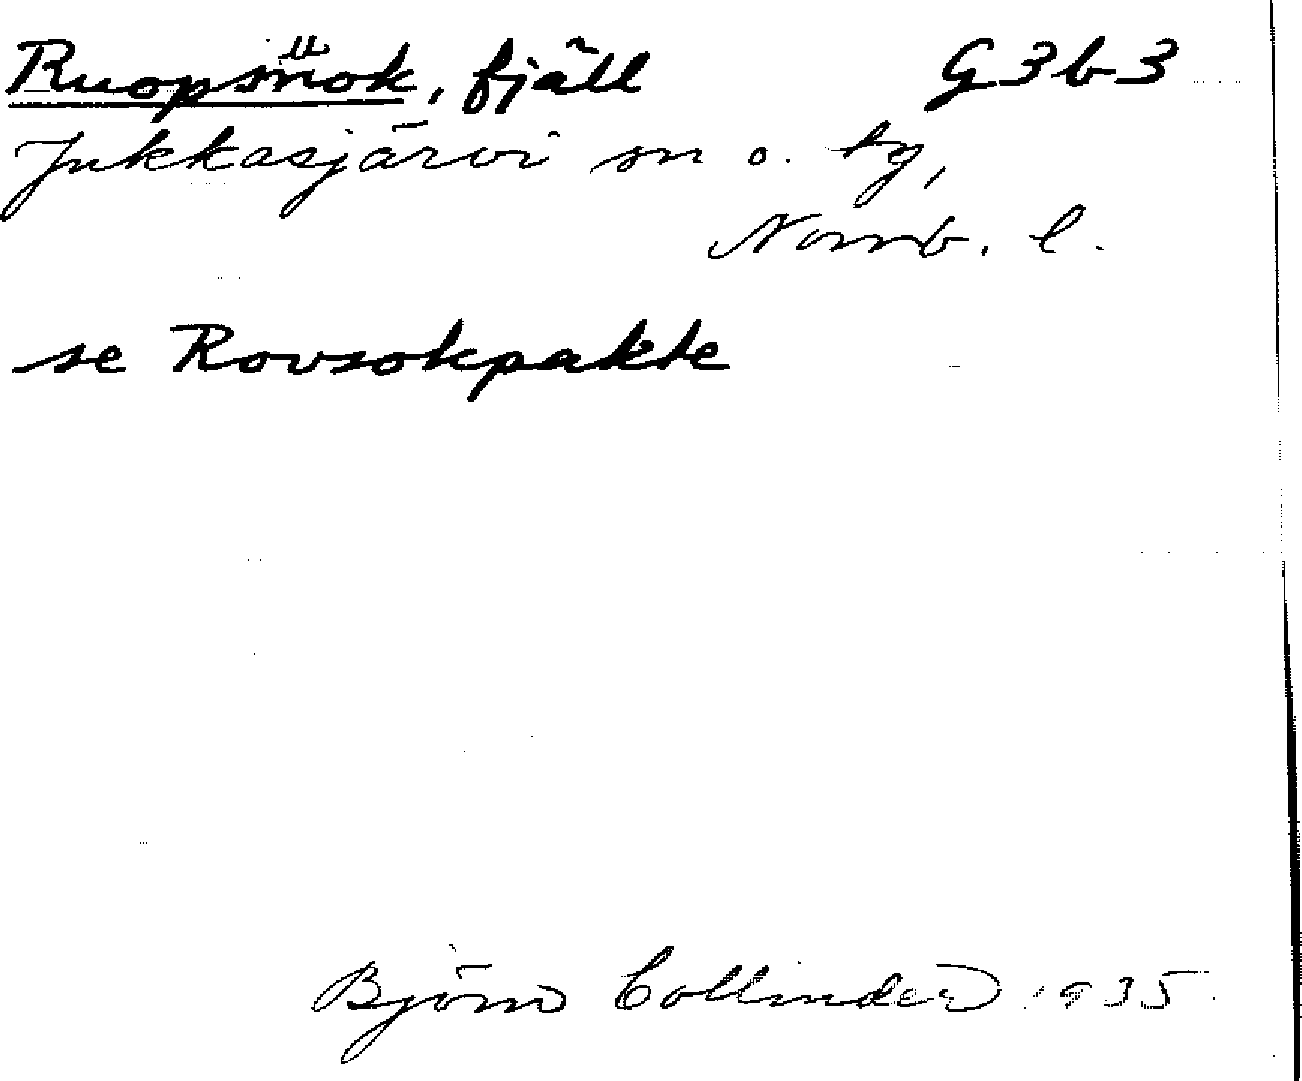 Ruopsuok, fjäll G3b3
Jukkasjärvi sn o. tg,
Norrb. l.
se Rovsokpakte
Björn Collinder 1935